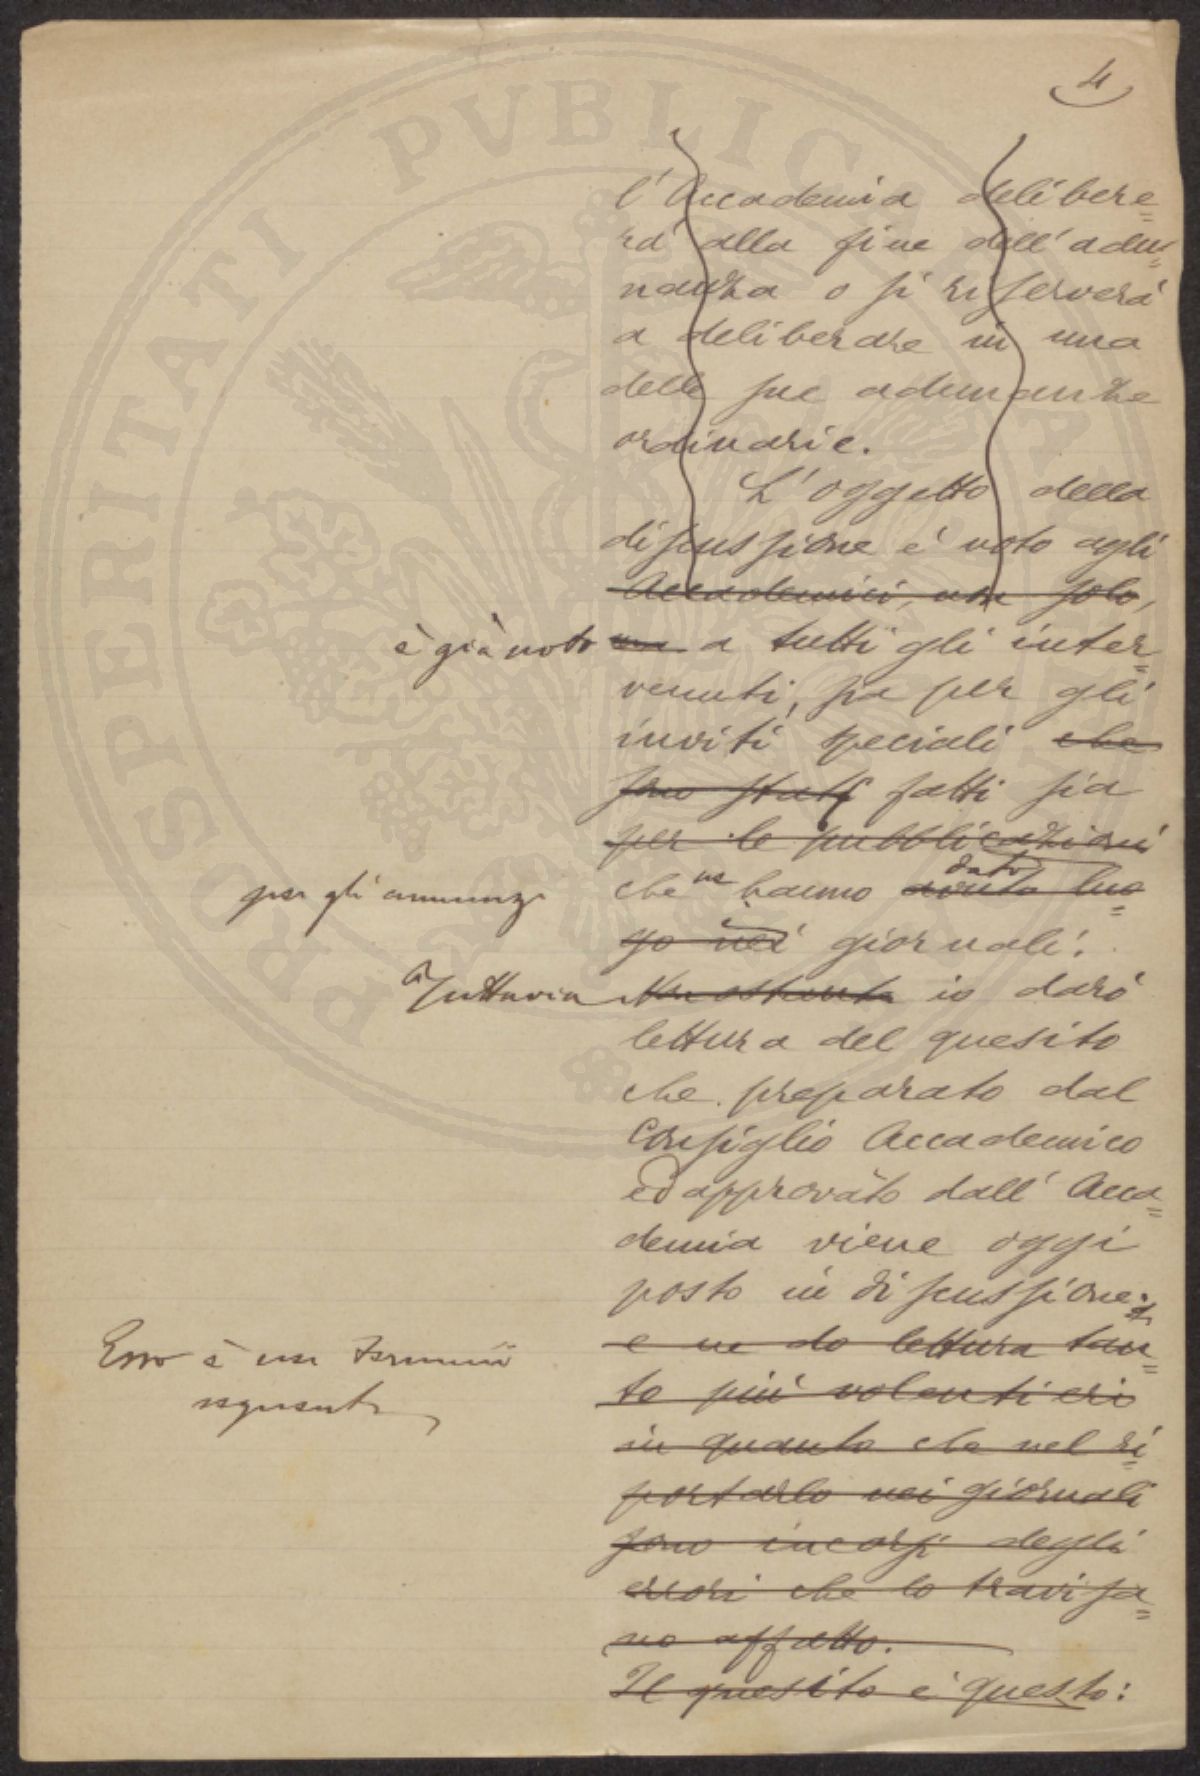 4
l'Accademia delibere=
rà alla fine dell'adu=
nanza o si riserverà
a deliberare in una
delle sue adunanze
ordinarie.
L'oggetto della
discussione è noto agli
Accademici, non solo,
è già noto ma a tutti gli inter=
venuti, sia per gli
inviti speciali che
sono stati fatti sia
per le pubblicazioni
per gli annunzi che ne hanno avuto luo=
dato
go nei giornali.
Tuttavia Non ostante io darò
lettura del quesito
che preparato dal
Consiglio Accademico
ed approvato dall'Acca=
demia viene oggi
posto in discussione.
e ne do lettura tan=
Esso è nei termini
seguenti
to più volentieri
in quanto che nel ri=
portarlo nei giornali
sono incorsi degli
errori che lo travisa=
no affatto.
Il quesito è questo:
PROSPERITATI PVBLICAE